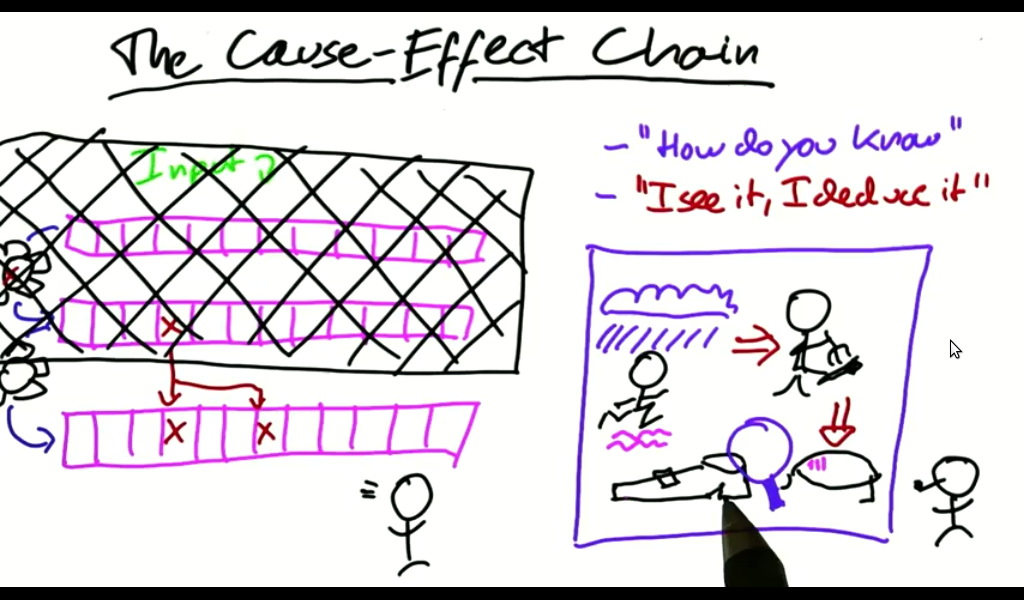 The Cause-Effect Chain
Input ?
- "How do you know"
- "I see it, I deduce it"